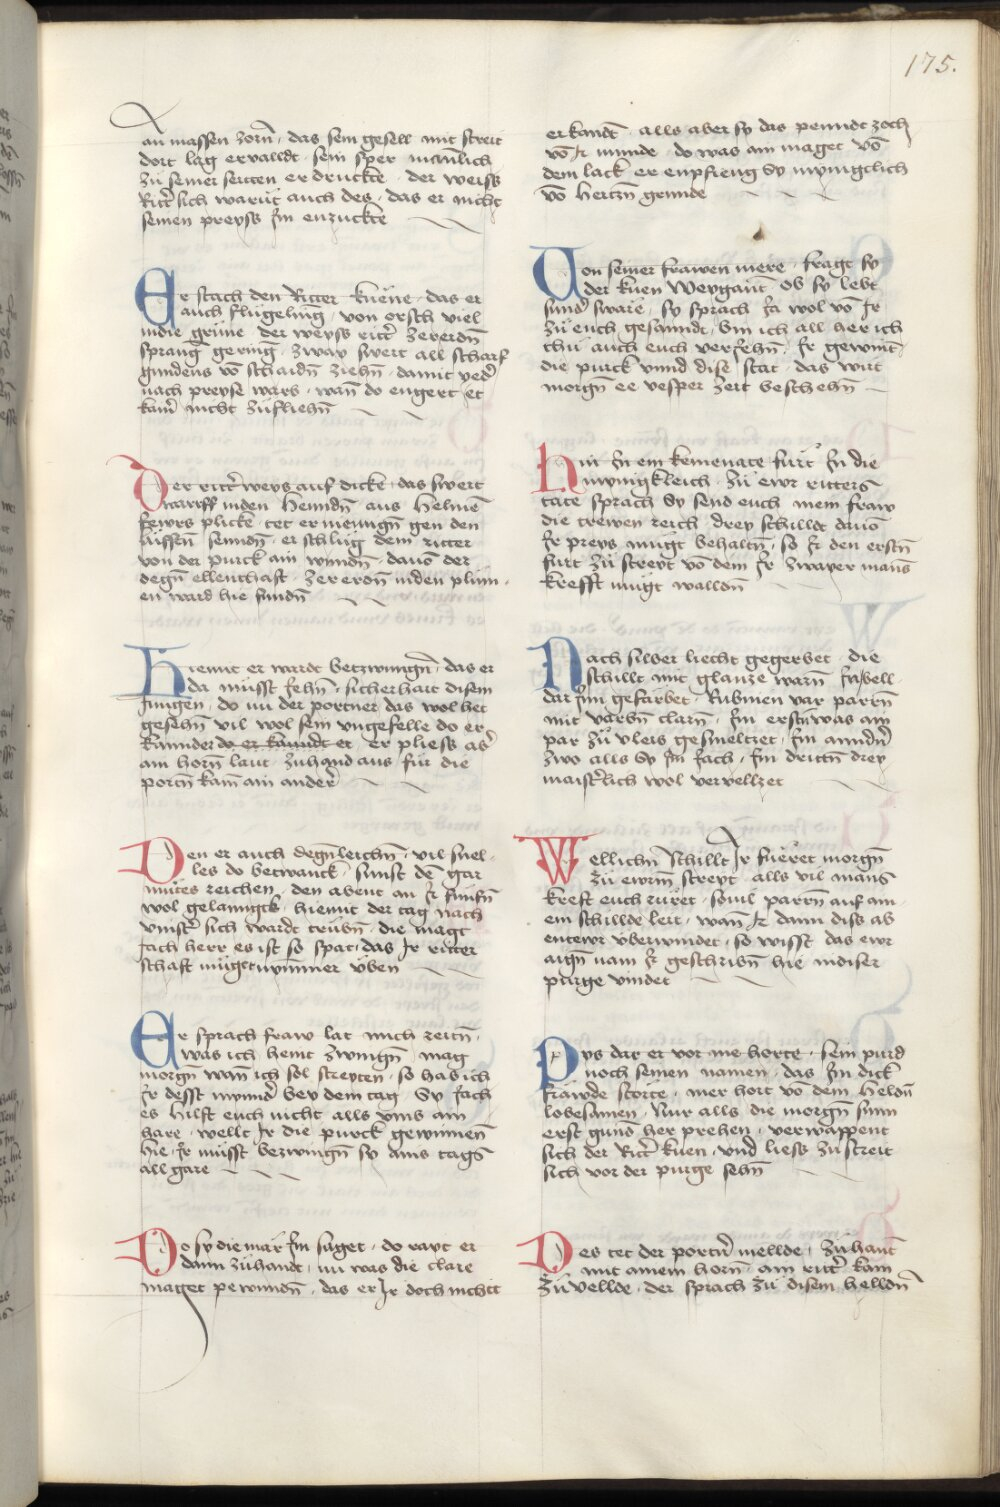 175.
an massen zorñ · das sein gesell mit streit
dort lag ervalldt · sein sper manlich
zů seiner seitten er druckte · der weiss
Ritt͛ sich warüt auch des · das er nicht
seinen preyss Im enzuckte
Er stach den Ritter küene · das er
auch flügeling̃ · von orsch viel
indie grüne der weyss ritt͛ zererdñ
sprang gering̃ · zway swert all scharf
gundens võ schaidñ ziehñ · damit yed͛
nach preyse warb · wañ do enget et
kain͛ nicht züfliehñ
Der ritt͛ weys auf dicke · das swert
warff inden henndñ aus helmẽ
fewrs plicke · tet er menign̄ gen den
lüfftñ senndñ · er schlůg dem ritter
von der purck ain wundñ · dauõ der
degñ ellenthaft · zererdñ inden plům ·
en ward hie fundñ
Hiemit er wardt betzwungñ · das er
da müsst Jehñ · sicherhait disem
Jungen · do nu der portner das wol het
gesehñ vil wol sein ungefelle do er
kannder do er kanndt et er pliess ab͛
ain horñ laut zuhand aus für die
portñ kam̃ ain ander͛
Den er auch degñleichñ · vil snel ·
les do betwanck · sunst dẽ gar
mütes reichen · den abent an Ir fünfñ
wol gelanngk · hiemit der tag nach
vinst͛ sich wardt trübñ · die magt
Jach herr es ist so spat · das Ir ritter
schaft müget nymmer üben
Er sprach fraw lat mich zeitñ ·
was ich heint zwingñ mag
morgñ wañ ich sol streyten · so hab ich
Ir desst mynnd͛ bey dem tag · Sy Jach
es hilft euch nicht alls vmb ain
hare · wellt Ir die purck gewinnen
hie · Ir müsst bezwingñ sy ains tags
all gare
Do sy die mär Im saget · do rayt er
dann zühandt · nu was die clare
maget pewundñ · das er Ir doch nichtt
erkandt · alls aber sy das penndt zoch
võ Ir munde · do was ain maget võ
dem lack er enpfieng Sy ynnigclich
võ hertzñ grunde
Von seiner frawen mere · fragt sy
der küen Weygant̃ ob sy lebt
sund͛ sware · sy sprach Ja wol võ Ir
zü euch gesanndt · bin ich all her ich
thů auch euch verJehñ · Ir gewint
die purck vnnd dise stat · das wirt
morgñ ee vesper zeit beschehñ
Hin In ein kemenate fürt In die
mynigkleich · zů ewr ritters
tate sprach Sy send euch mein fraw
die trewen reich drey schilldt dauõ
Ir preys mügt behaltñ · so Ir den erstñ
fürt zü streyt võ dem Ir zwayer mans
krefft mügt walldñ
Nach silber liecht gegerbet · die
schillt mit glantze warñ Jnsell ·
dar Jnn gefärbet · Rubinen var parrñ
mit varbñ clarñ · Im erstñ was ain
par zů vleis gesmeltzet · Im anndñ
zwo alls Sy Im Jach · Im drittñ drey
maist͛lich wol verwellzet
Wellichñ Schillt Ir füeret morgñ
zü ewrm̃ streyt · alls vil mans
kreft euch rüret · souil parrñ auf ain ·
em schillde leit · wañ Ir dann diss ab
entewr vberwindet · so wisst das ewr
aigñ nam Ir geschribñ hie indiser
purge vindet
Pys dar er vor nie horte · sein purd
noch seinen namen · das Im dick
frawde störte · mer hort võ dem heldñ
lobesamen · Nur alls die morgñ sunn
erst gund͛ her prehen · verwappent
sich der Ritt͛ küen · vnd liess zü streit
sich vor der purge sehñ
Des tet der portñ͛ mellde · zü hant̃
mit ainem horñ · ain ritt͛ kam
zü vellde · der sprach zü disem helldñ